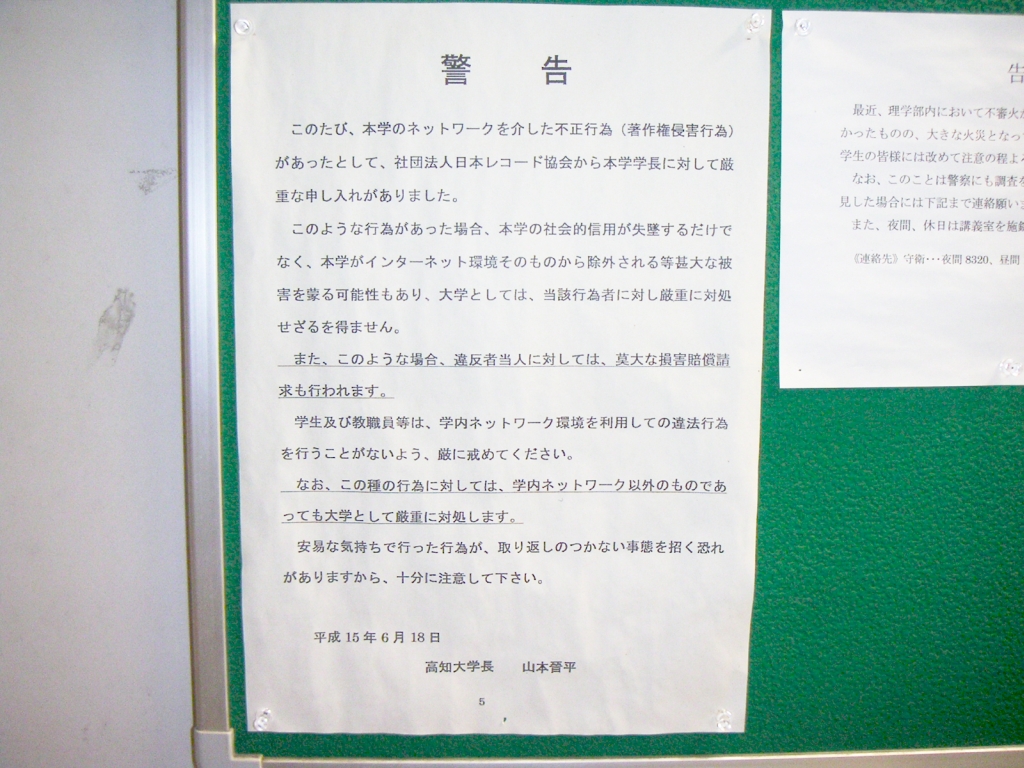 警告
このたび、本学のネットワークを介した不正行為（著作権侵害行為）
があったとして、社団法人日本レコード協会から本学学長に対して厳
重な申し入れがありました。
このような行為があった場合、本学の社会的信用が失墜するだけで
なく、本学がインターネット環境そのものから除外される等甚大な被
害を蒙る可能性もあり、大学としては、当該行為者に対し厳重に対処
せざるを得ません。
また、このような場合、違反者当人に対しては、莫大な損害賠償請
求も行われます。
学生及び教職員等は、学内ネットワーク環境を利用しての違法行為
を行うことがないよう、厳に戒めてください。
なお、この種の行為に対しては、学内ネットワーク以外のものであ
っても大学として厳重に対処します。
安易な気持ちで行った行為が、取り返しのつかない事態を招く恐れ
がありますから、十分に注意して下さい。
平成15年6月18日
高知大学長　山本晉平
5
告
最近、理学部内において不審火が
かったものの、大きな火災となっ
学生の皆様には改めて注意の程よ
なお、このことは警察にも調査を
見した場合には下記まで連絡願いま
また、夜間、休日は講義室を施錠
《連絡先》守衛･･･夜間8320、昼間